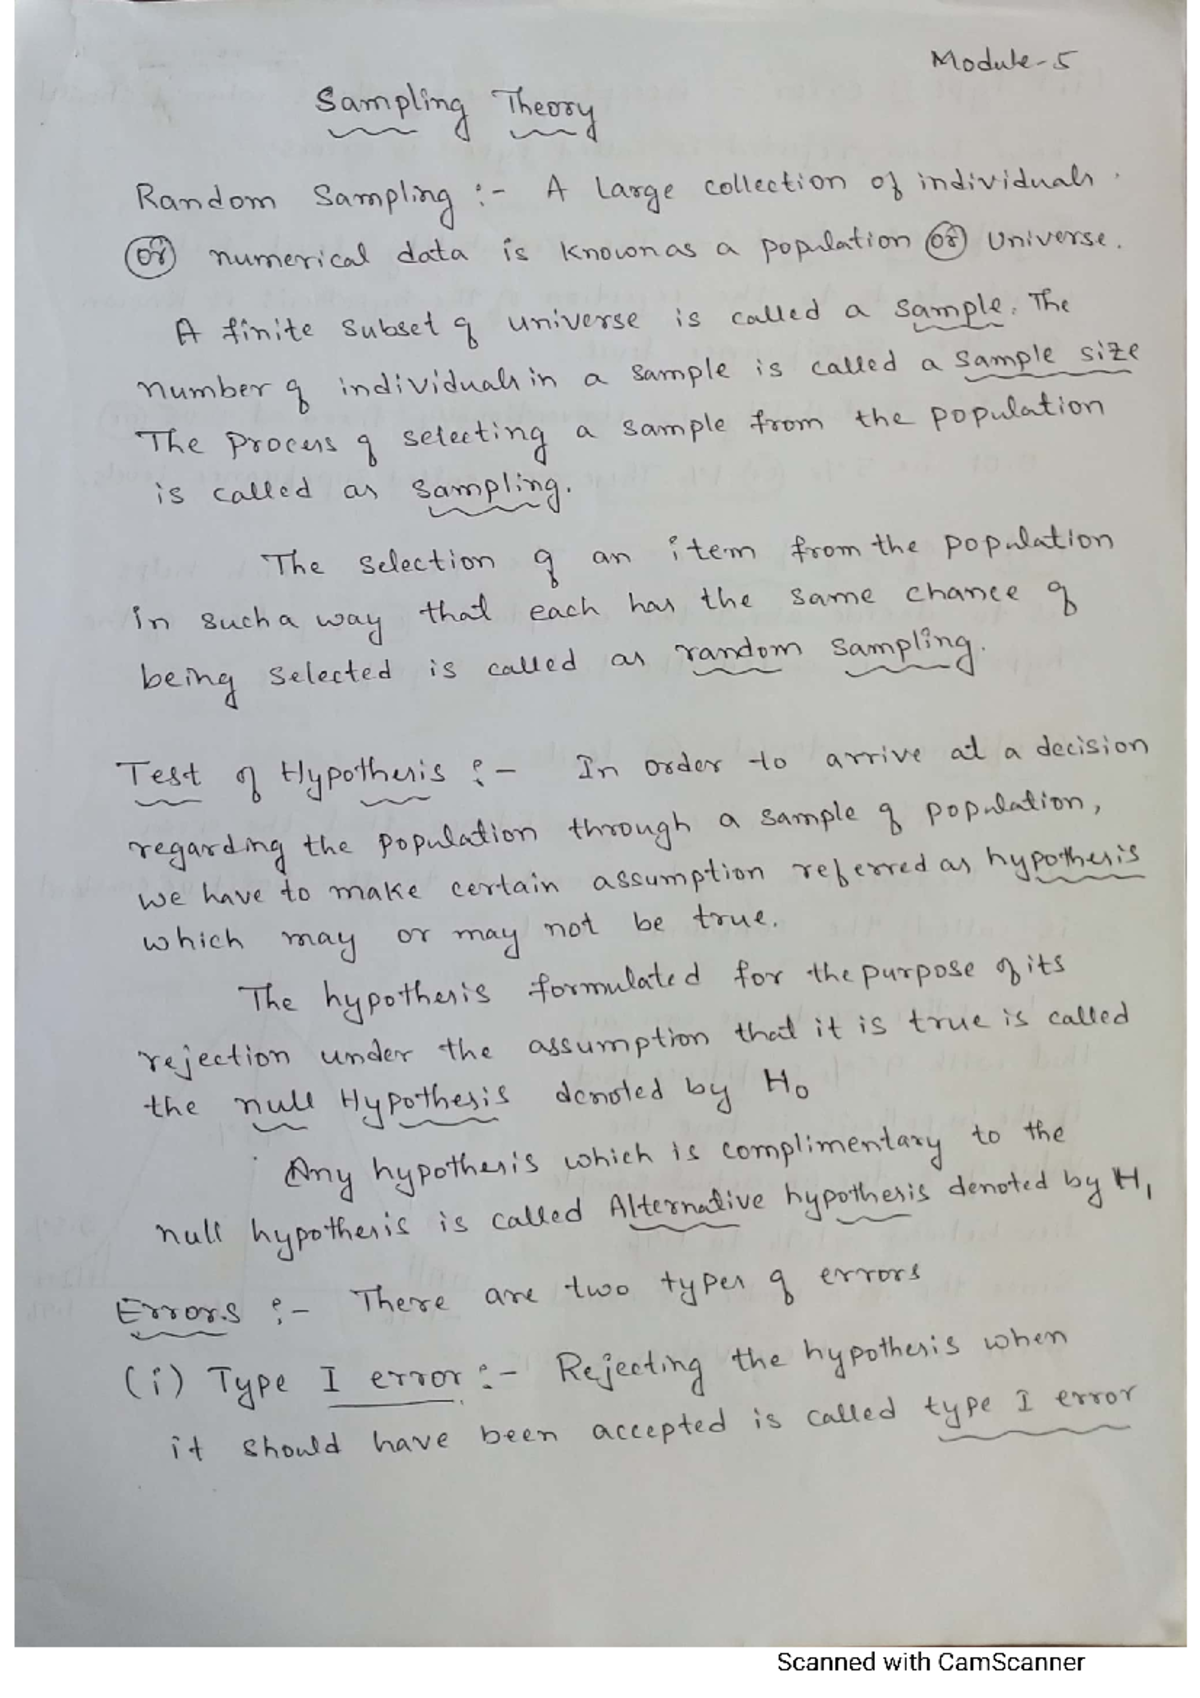 Module-5
Sampling Theory
Random Sampling :- A Large collection of individuals.
(or) numerical data is known as a population (or) Universe.
A finite subset of universe is called a sample. The
number of individuals in a sample is called a sample size
The process of selecting a sample from the population
is called as sampling.
The selection of an item from the population
in such a way that each has the same chance of
being selected is called as random sampling.
Test of Hypothesis :- In order to arrive at a decision
regarding the population through a sample of population,
we have to make certain assumption referred as hypothesis
which may or may not be true.
The hypothesis formulated for the purpose of its
rejection under the assumption that it is true is called
the null Hypothesis denoted by H₀
Any hypothesis which is complimentary to the
null hypothesis is called Alternative hypothesis denoted by H₁
Errors :- There are two types of errors
(i) Type I error :- Rejecting the hypothesis when
it should have been accepted is called type I error
Scanned with CamScanner